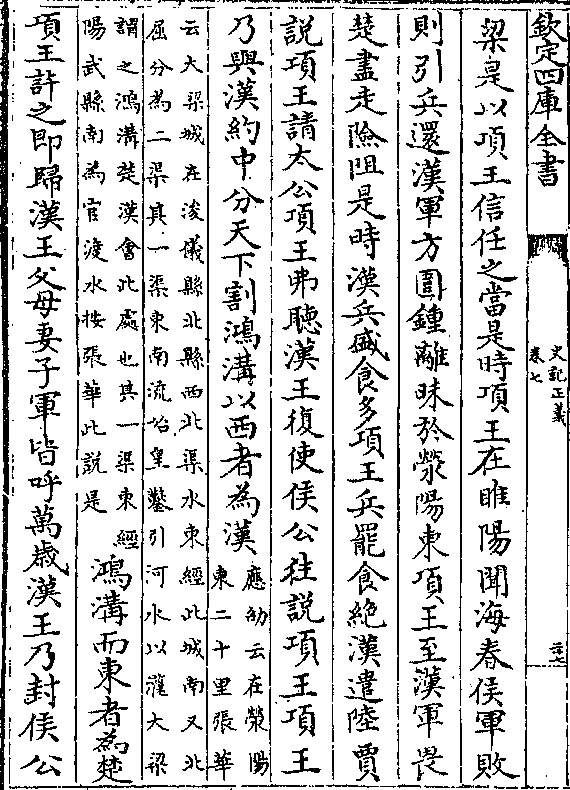 欽定四庫全書
史記正義
卷七
二十七
梁是以項王信任之當是時項王在睢陽聞海春侯軍敗
則引兵還漢軍方圍鍾離昧於滎陽東項王至漢軍畏
楚盡走險阻是時漢兵盛食多項王兵罷食絶漢遣陸賈
説項王請太公項王弗聽漢王復使侯公往説項王項王
乃與漢約中分天下割鴻溝以西者為漢
應劭云在滎陽
東二十里張華
云大梁城在浚儀縣北縣西北渠水東經此城南又北
屈分為二渠其一渠東南流始皇鑿引河水以灌大梁
謂之鴻溝楚漢會此處也其一渠東經
陽武縣南為官渡水按張華此説是
鴻溝而東者為楚
項王許之即歸漢王父母妻子軍皆呼萬歳漢王乃封侯公